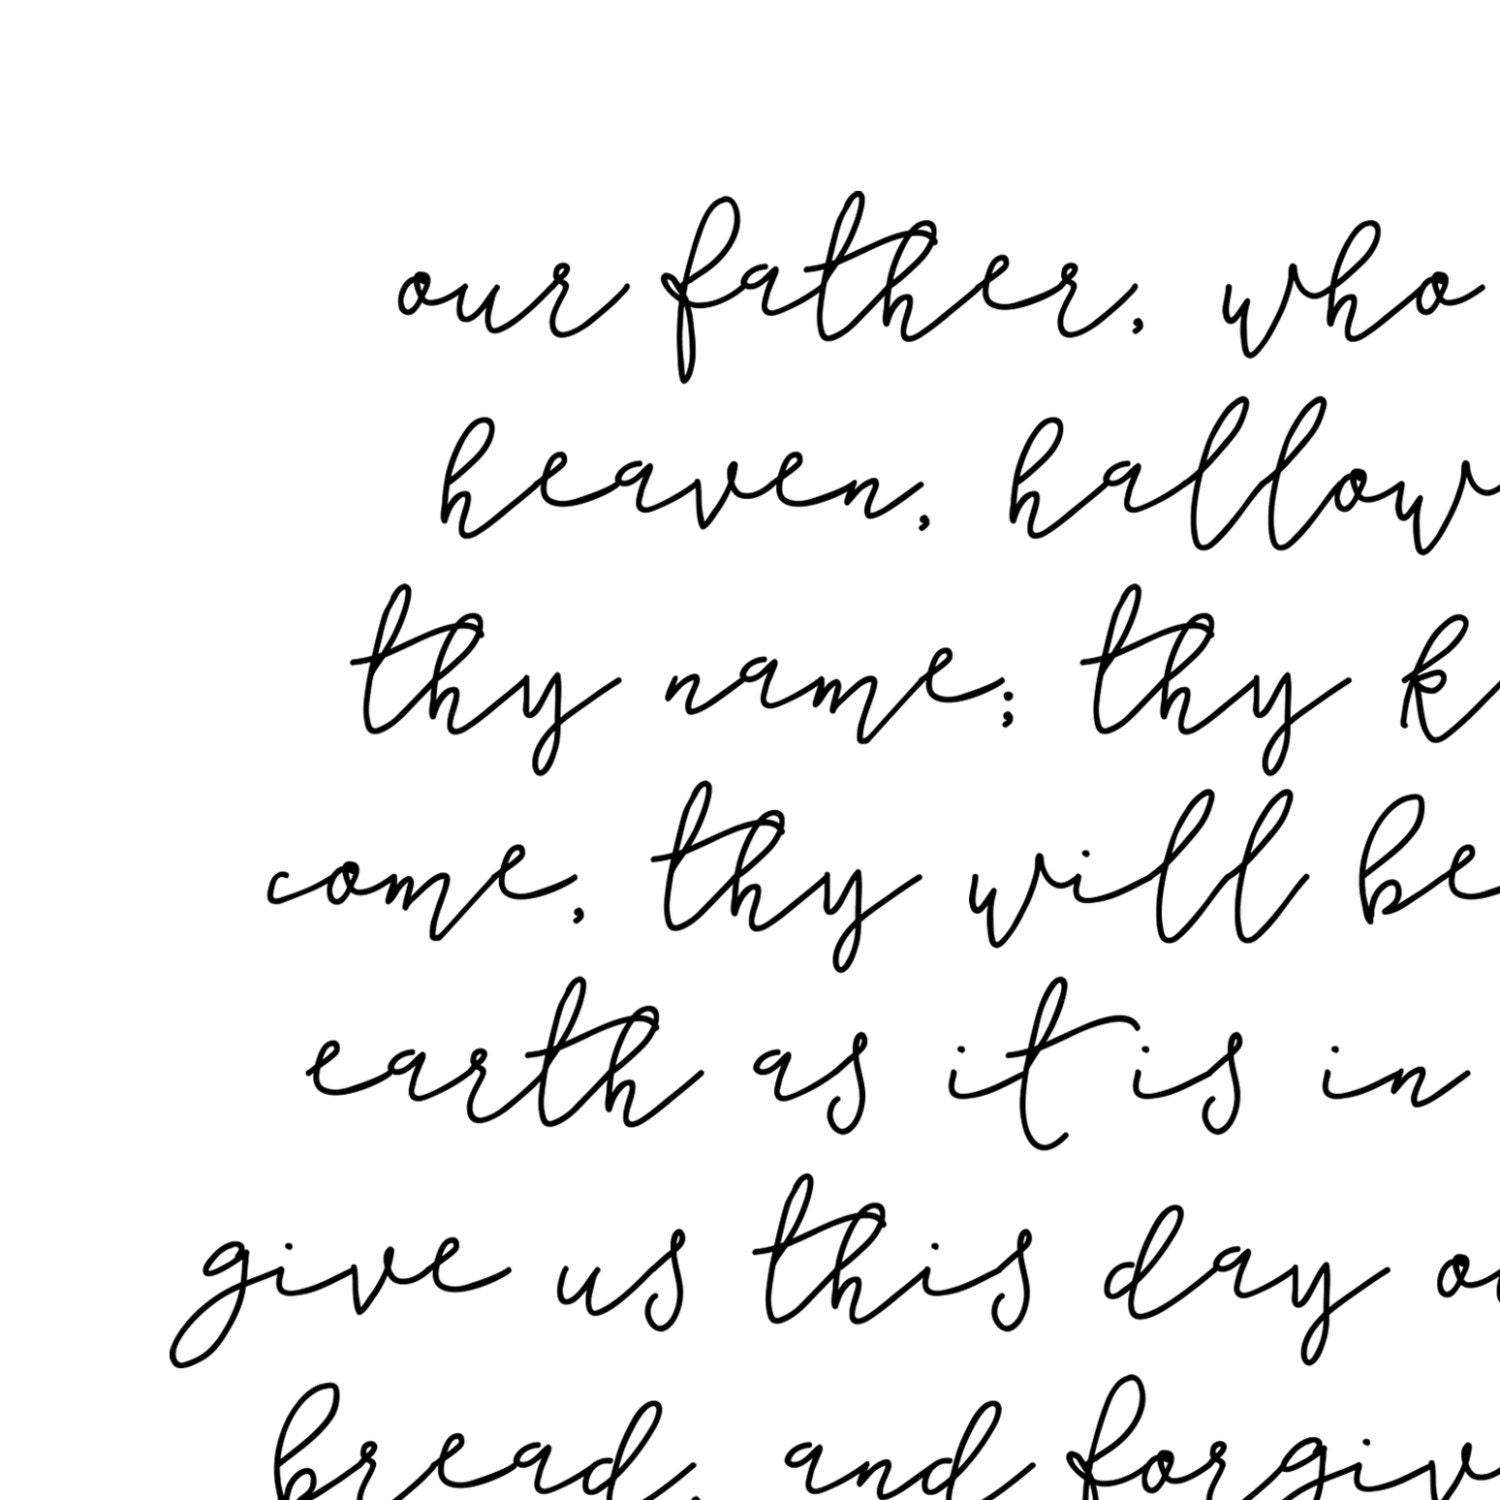 our father, who
heaven, hallow
thy name; thy k
come, thy will be
earth as it is in
give us this day o
bread, and forgiv